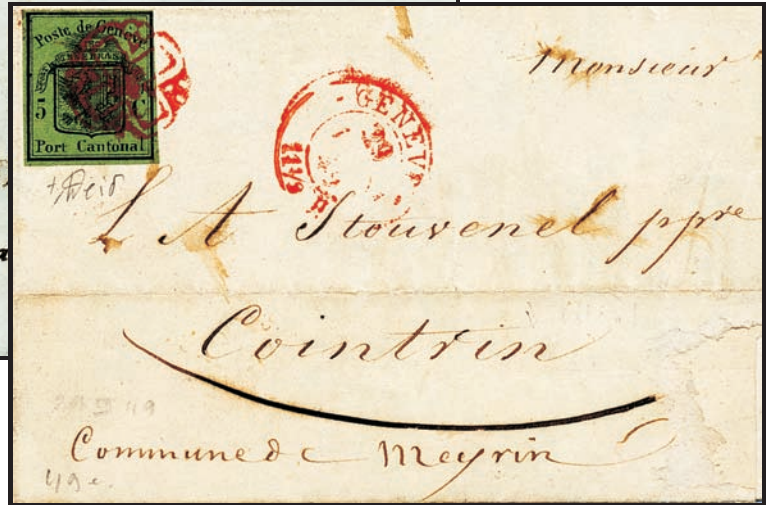 Poste de Genève
5 C
Port Cantonal
Monsieur
GENEV
11½
L A Stouvenel ppre
Cointrin
Commune de Meyrin
49